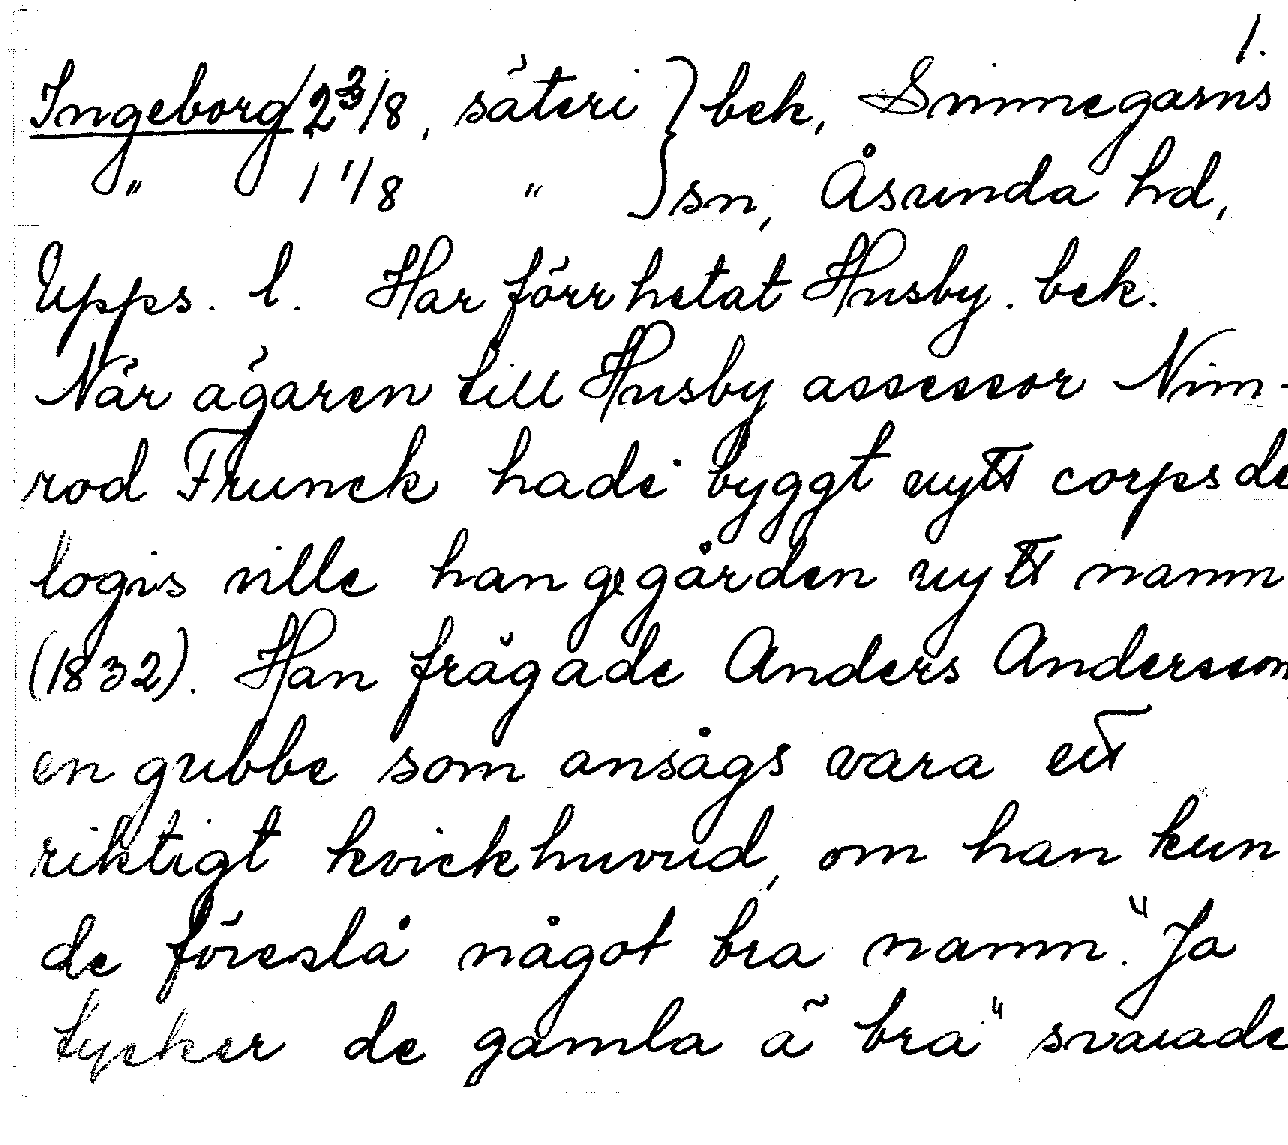 1.
Ingeborg 2 3/8, säteri } bek, Simmegarns
" 1 1/8 " } sn, Åsunda hd,
Upps. l. Har förr hetat Husby. bek.
När ägaren till Husby assessor Nim-
rod Frunck hade byggt nytt corps de
logis ville han ge gården nytt namn
(1832). Han frågade Anders Andersson,
en gubbe som ansågs vara ett
riktigt kvickhuvud, om han kun
de föreslå något bra namn. "Ja
tycker de gamla ä bra" svarade